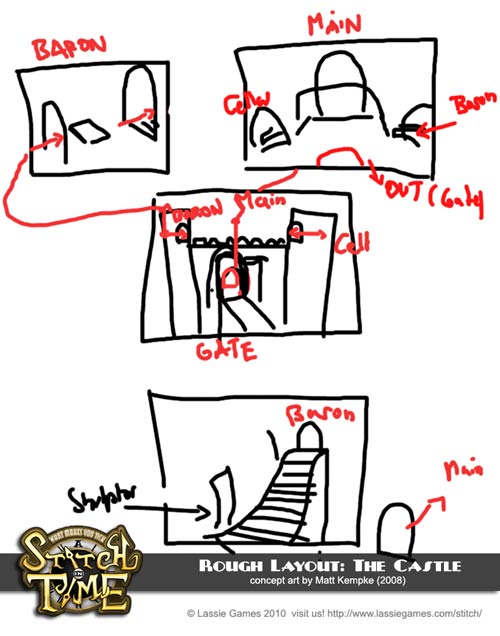 BARON
MAIN
Cellar
Baron
OUT (Gate)
BARON
Main
Cell
GATE
Baron
Sculptor
Main
WHAT MAKES YOU TICK
A STITCH
IN
TIME
ROUGH LAYOUT: THE CASTLE
concept art by Matt Kempke (2008)
© Lassie Games 2010 visit us! http://www.lassiegames.com/stitch/